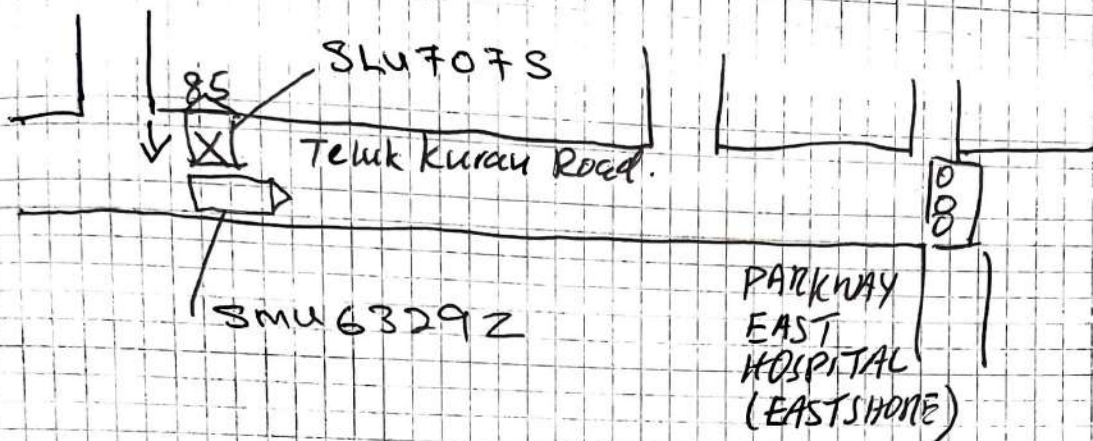 SLU707S
85
Teluk Kurau Road.
SMU6329Z
PARKWAY
EAST
HOSPITAL
(EASTSHORE)